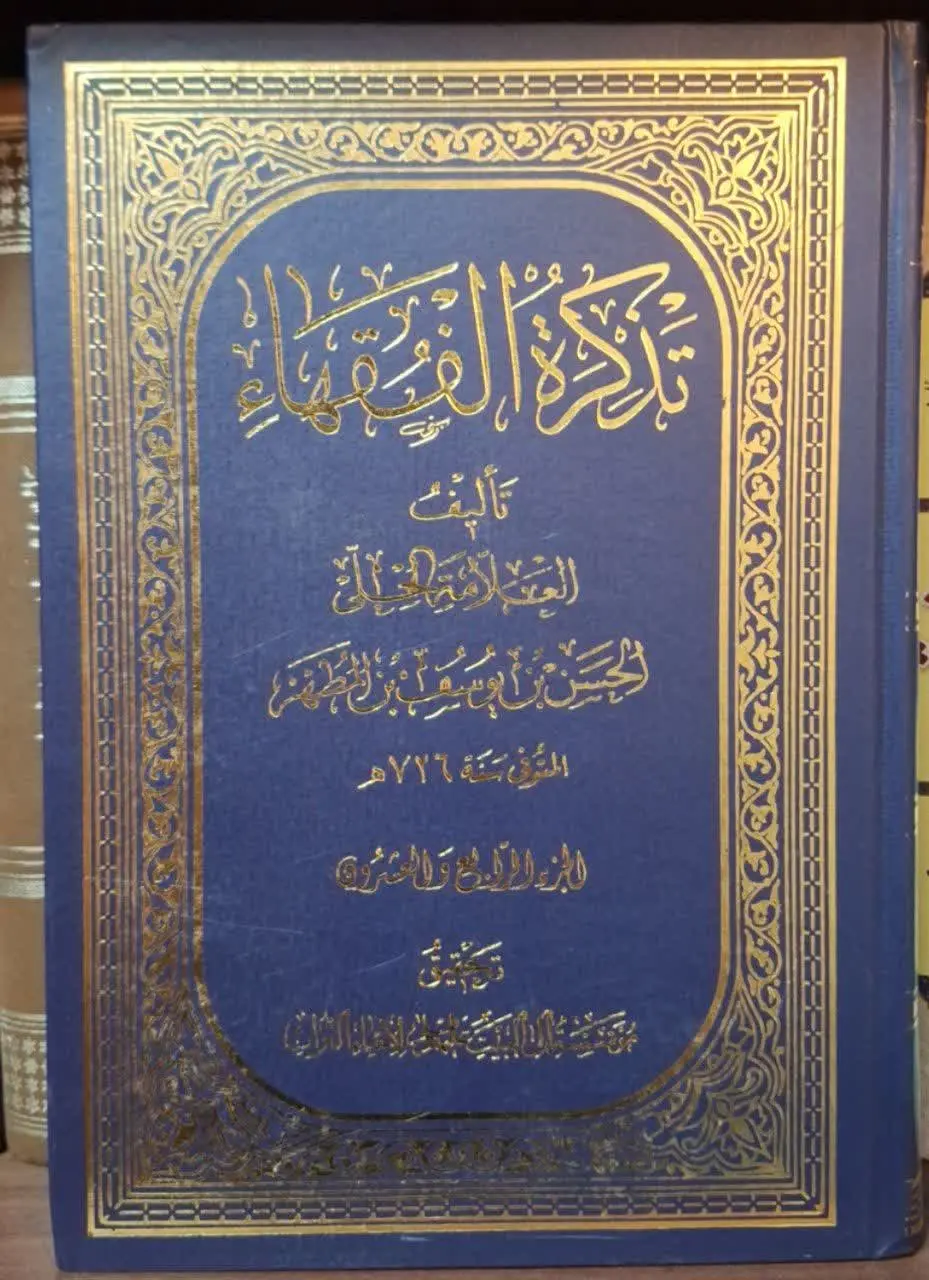 تَذْكِرَةُ الْفُقَهَاءِ
تَأليْفُ
العَلاّمَة الحِلّيّ
الحَسَن بْن يُوسُف بْن المُطَهَّر
المتوفّى سَنَة ٧٢٦ ه
الجزء الرّابع وَالعشرون
تَحْقيْقُ
مؤسّسة آل البيت عليهم السلام لإحياء التراث